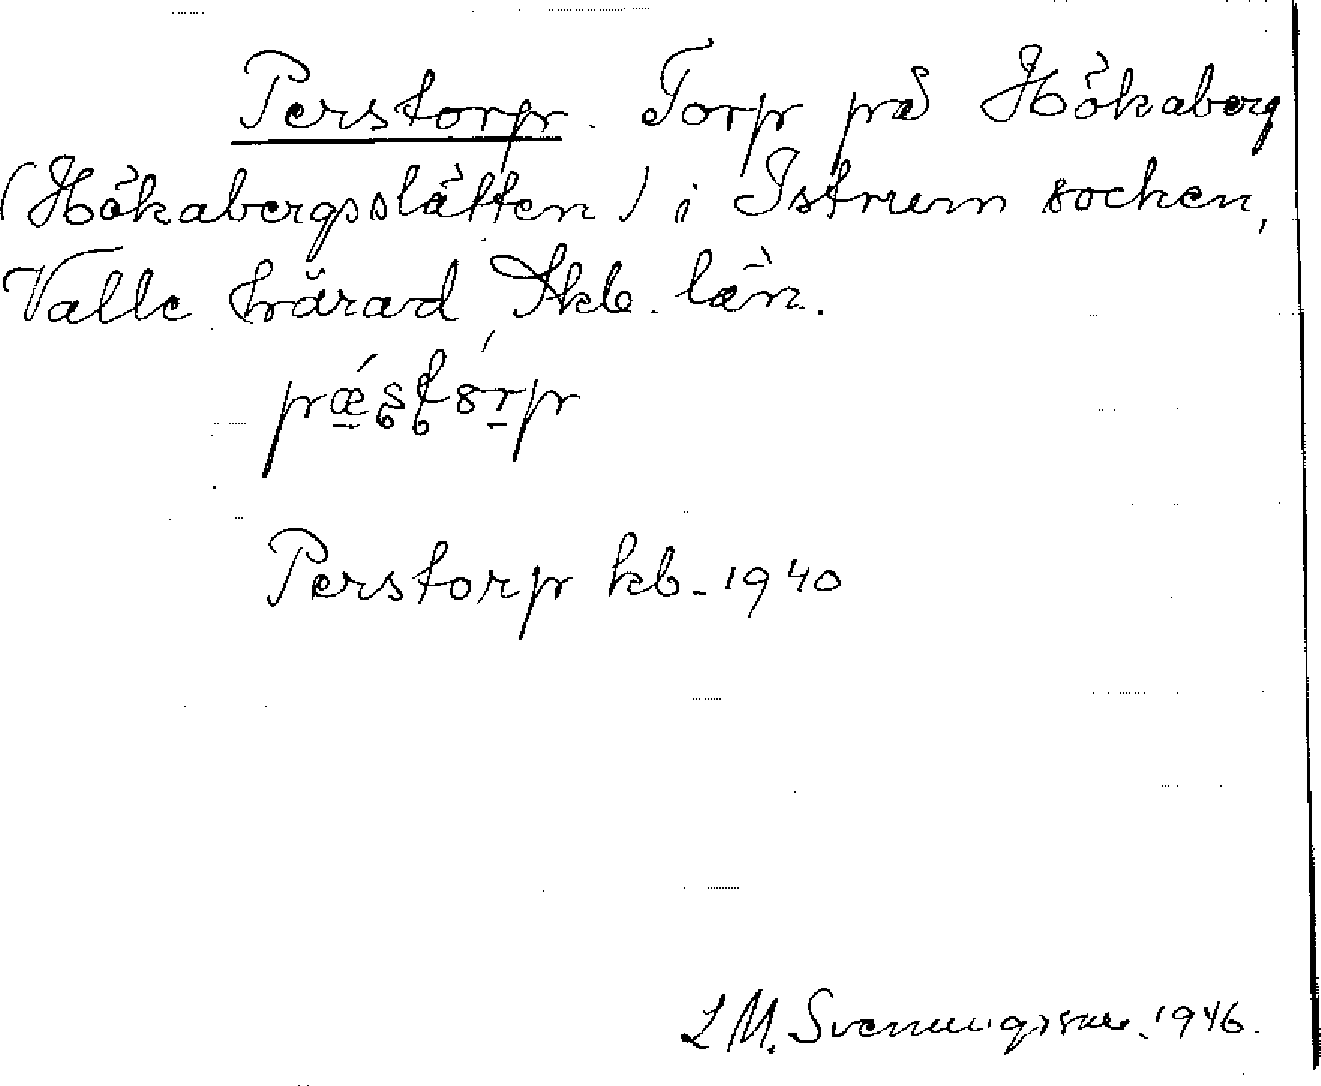 Perstorp. Torp på Hökaberg
(Hökabergsslätten) i Istrum socken,
Valle härad, Skb. län.
Perstorp kb. 1940
L M. Svenungsson. 1946.